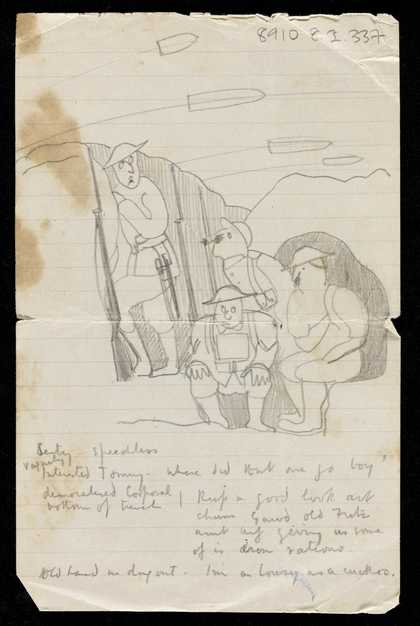 8910 8 I 337
Sentry speechless
Tommy - where did that one go boy'
demoralised Corporal | Keep a good look out
bottom of trench
chum Gawd old Fritz
aint arf giving us some
of is iron rations
Old hand in dug out - I'm as lousy as a cuckoo.